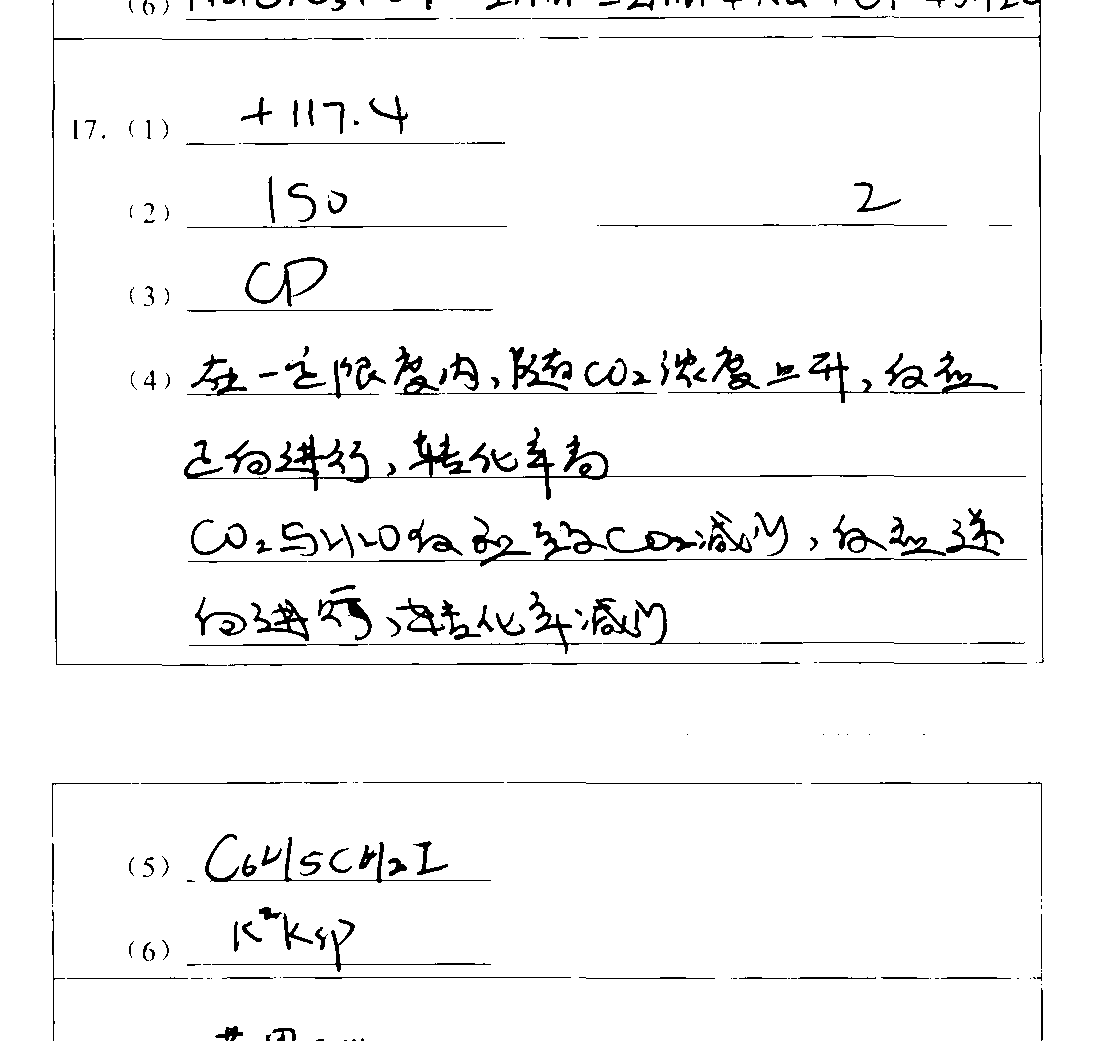 (6)
17. (1) +117.4
(2) 150 2
(3) CD
(4) 在一定限度内,随CO₂浓度上升,反应
正向进行,转化率高
CO₂与H₂O反应导致CO₂减少,反应逆
向进行,转化率减少
(5) C₆H₅CH₂I
(6) K²Ksp